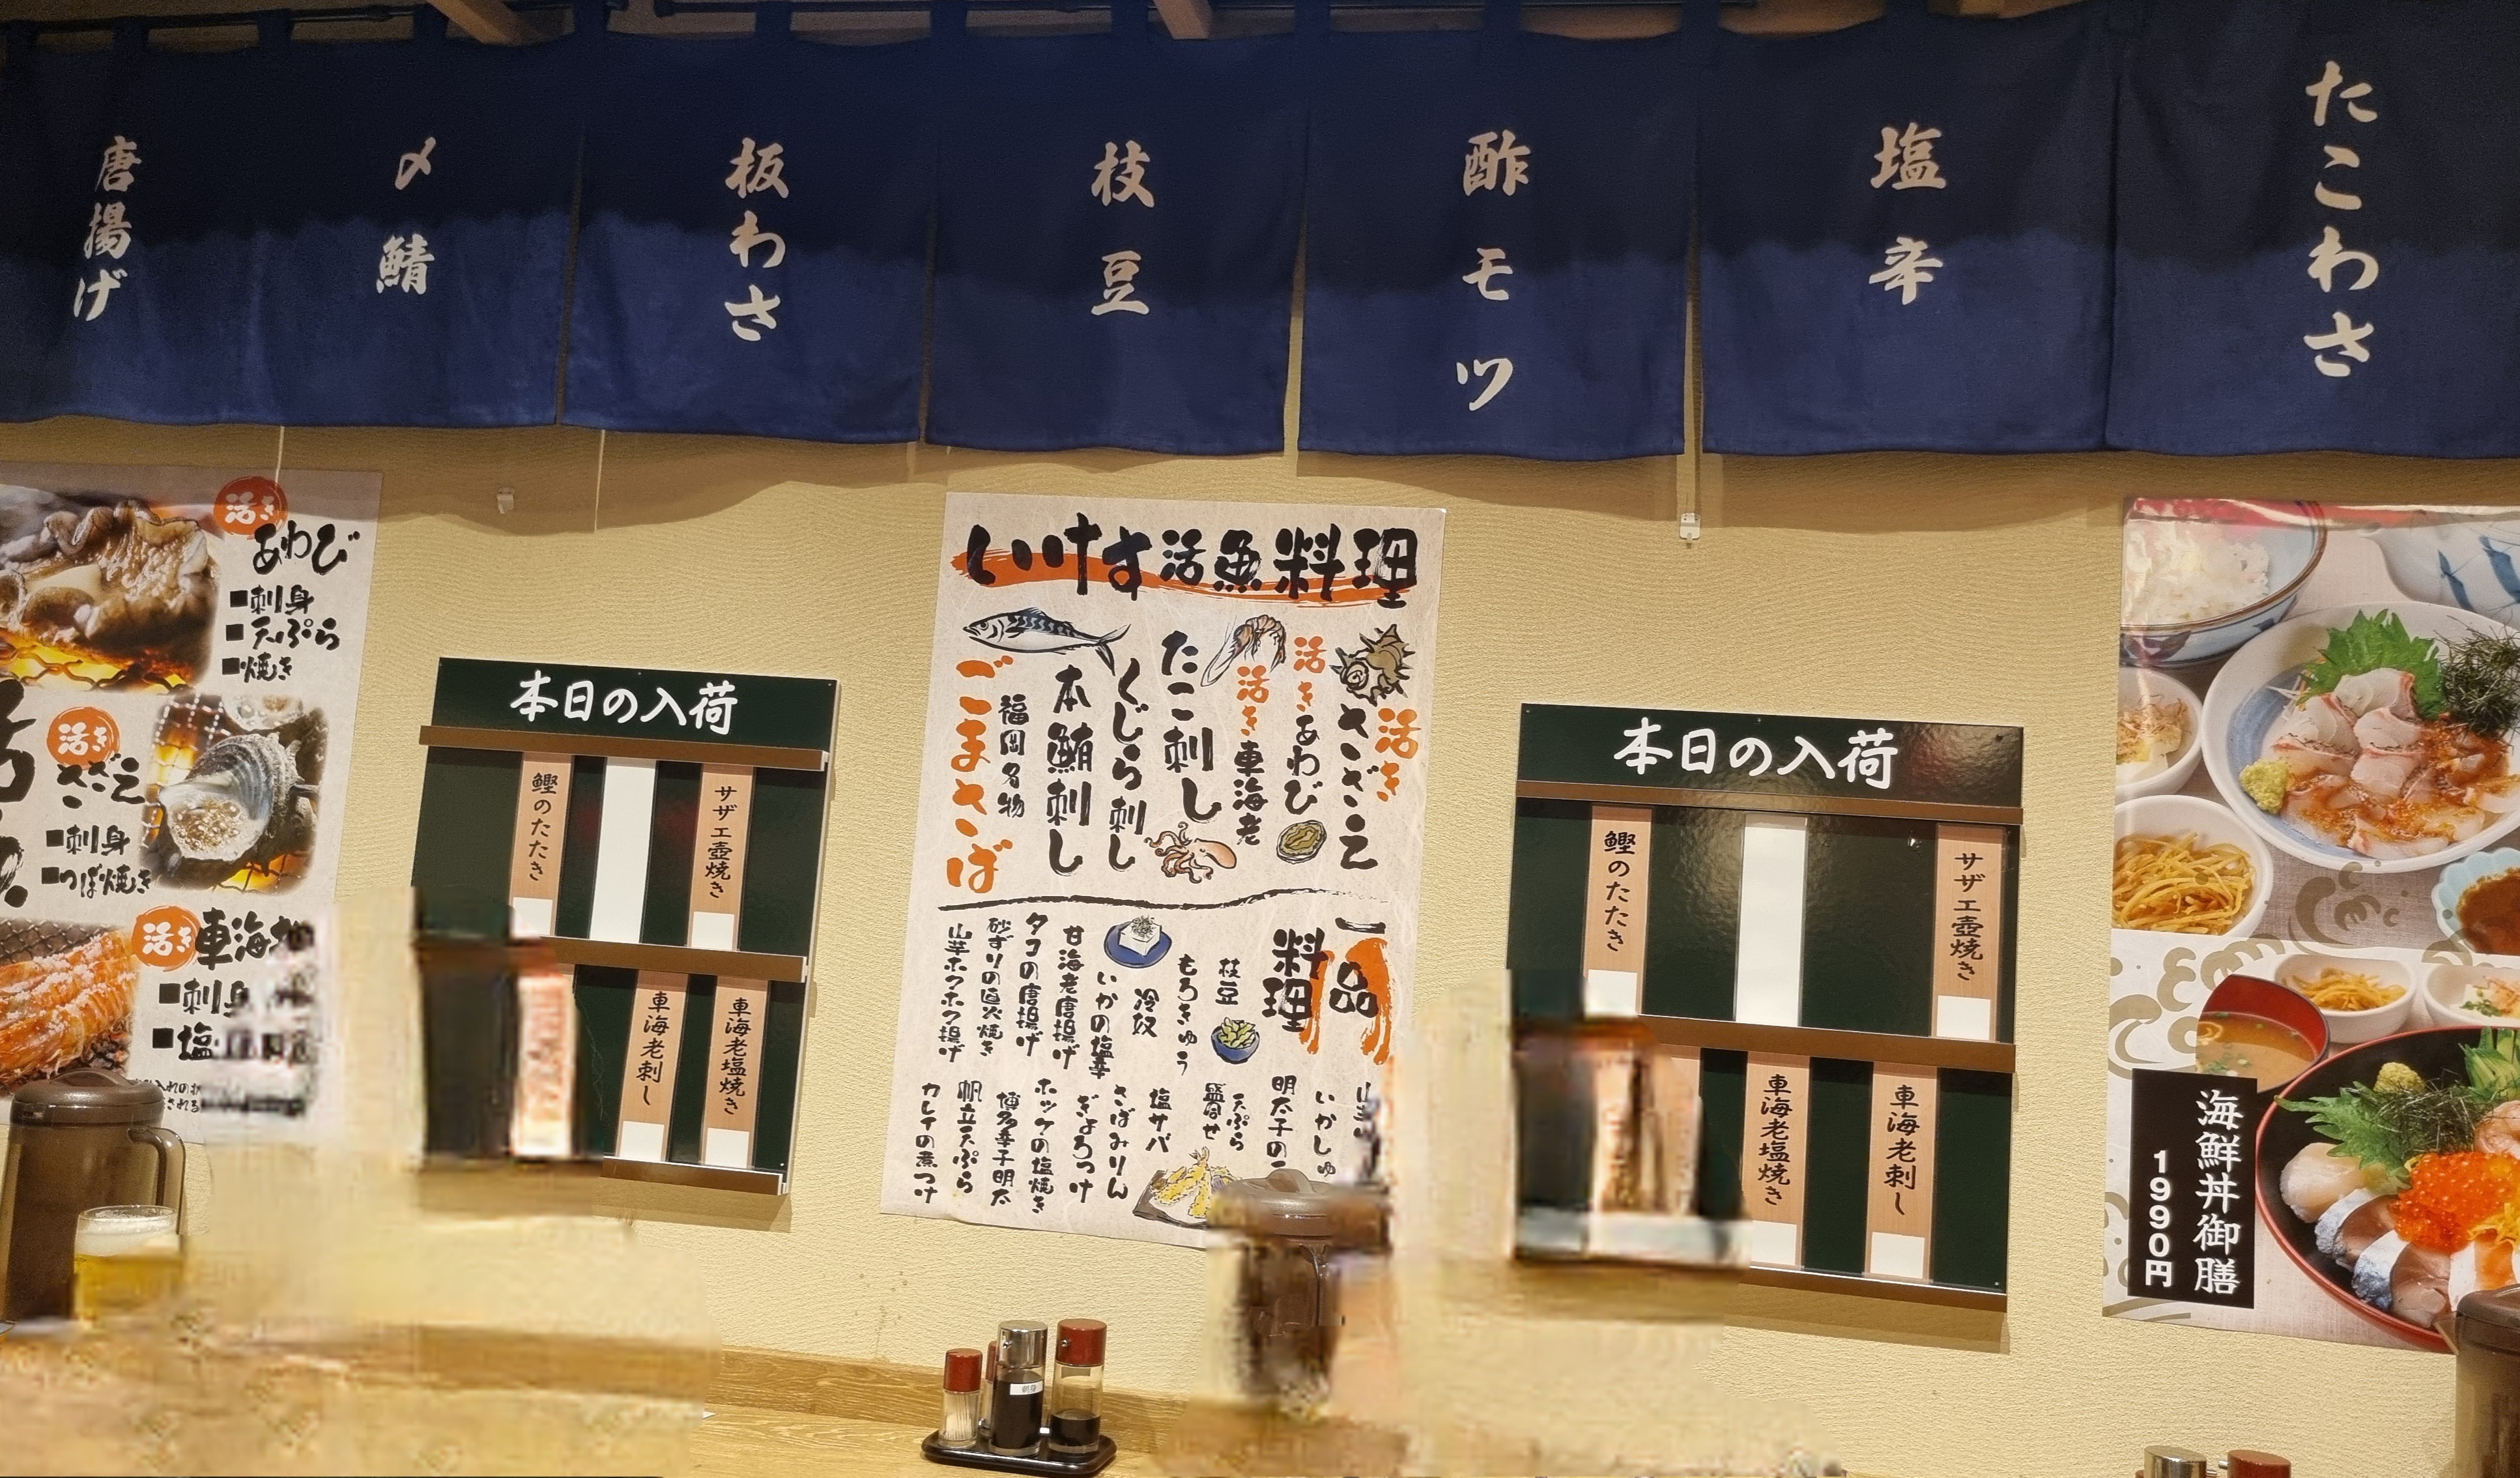 唐揚げ
〆鯖
板わさ
枝豆
酢モツ
塩辛
たこわさ
活き
あわび
■刺身
■天ぷら
■焼き
活き
さざえ
■刺身
■つぼ焼き
活き
車海
■刺身
■塩
本日の入荷
鰹のたたき
サザエ壺焼き
車海老刺し
車海老塩焼き
いけす活魚料理
活きさざえ
活きあわび
活き車海老
たこ刺し
くじら刺し
本鮪刺し
福岡名物
ごまさば
一品
料理
枝豆
もろきゅう
冷奴
いかの塩辛
甘海老唐揚げ
タコの唐揚げ
砂ずりの直火焼き
山芋ホクホク揚げ
いかしゅ
明太子の
天ぷら
盛合せ
塩サバ
さばみりん
ぎょろっけ
ホッケの塩焼き
博多辛子明太
帆立天ぷら
カレイの煮つけ
本日の入荷
鰹のたたき
サザエ壺焼き
車海老塩焼き
車海老刺し
海鮮丼御膳
1990円